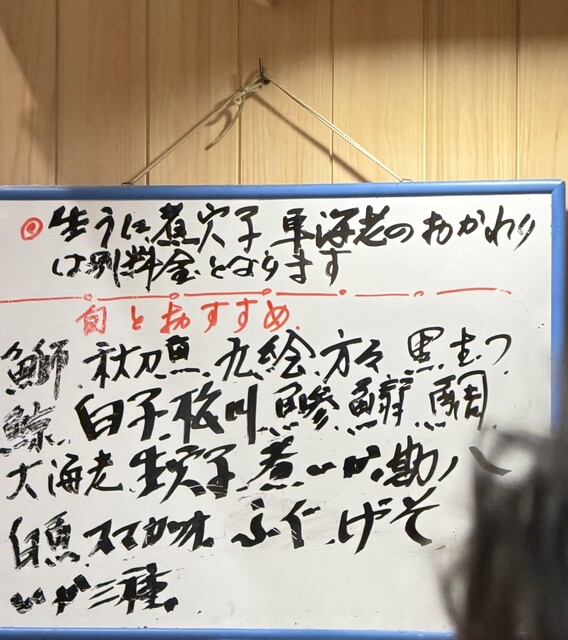 ◎生うに煮穴子車海老のおかわり
は別料金となります
旬とおすすめ
鰤 秋刀魚 九絵 方々 黒むつ
鯨 白子 桜川 鰺 鯛
大海老 生穴子 煮いか 勘八
白魚 スマカツオ ふぐ げそ
いか三種